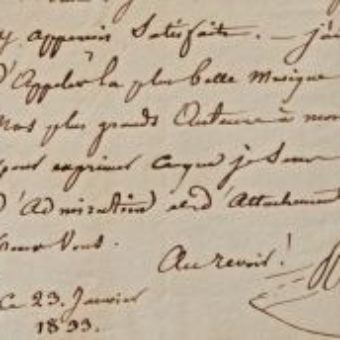 y appercu Satisfaite. — j'ai
d'Appeler la plus belle Musique
Nos plus grands Auteurs à mon
pour exprimer ce que je Sens
d'Admiration et d'Attachement
pour Vous.
Au revoir!
Ce 23. Janvier
1833.